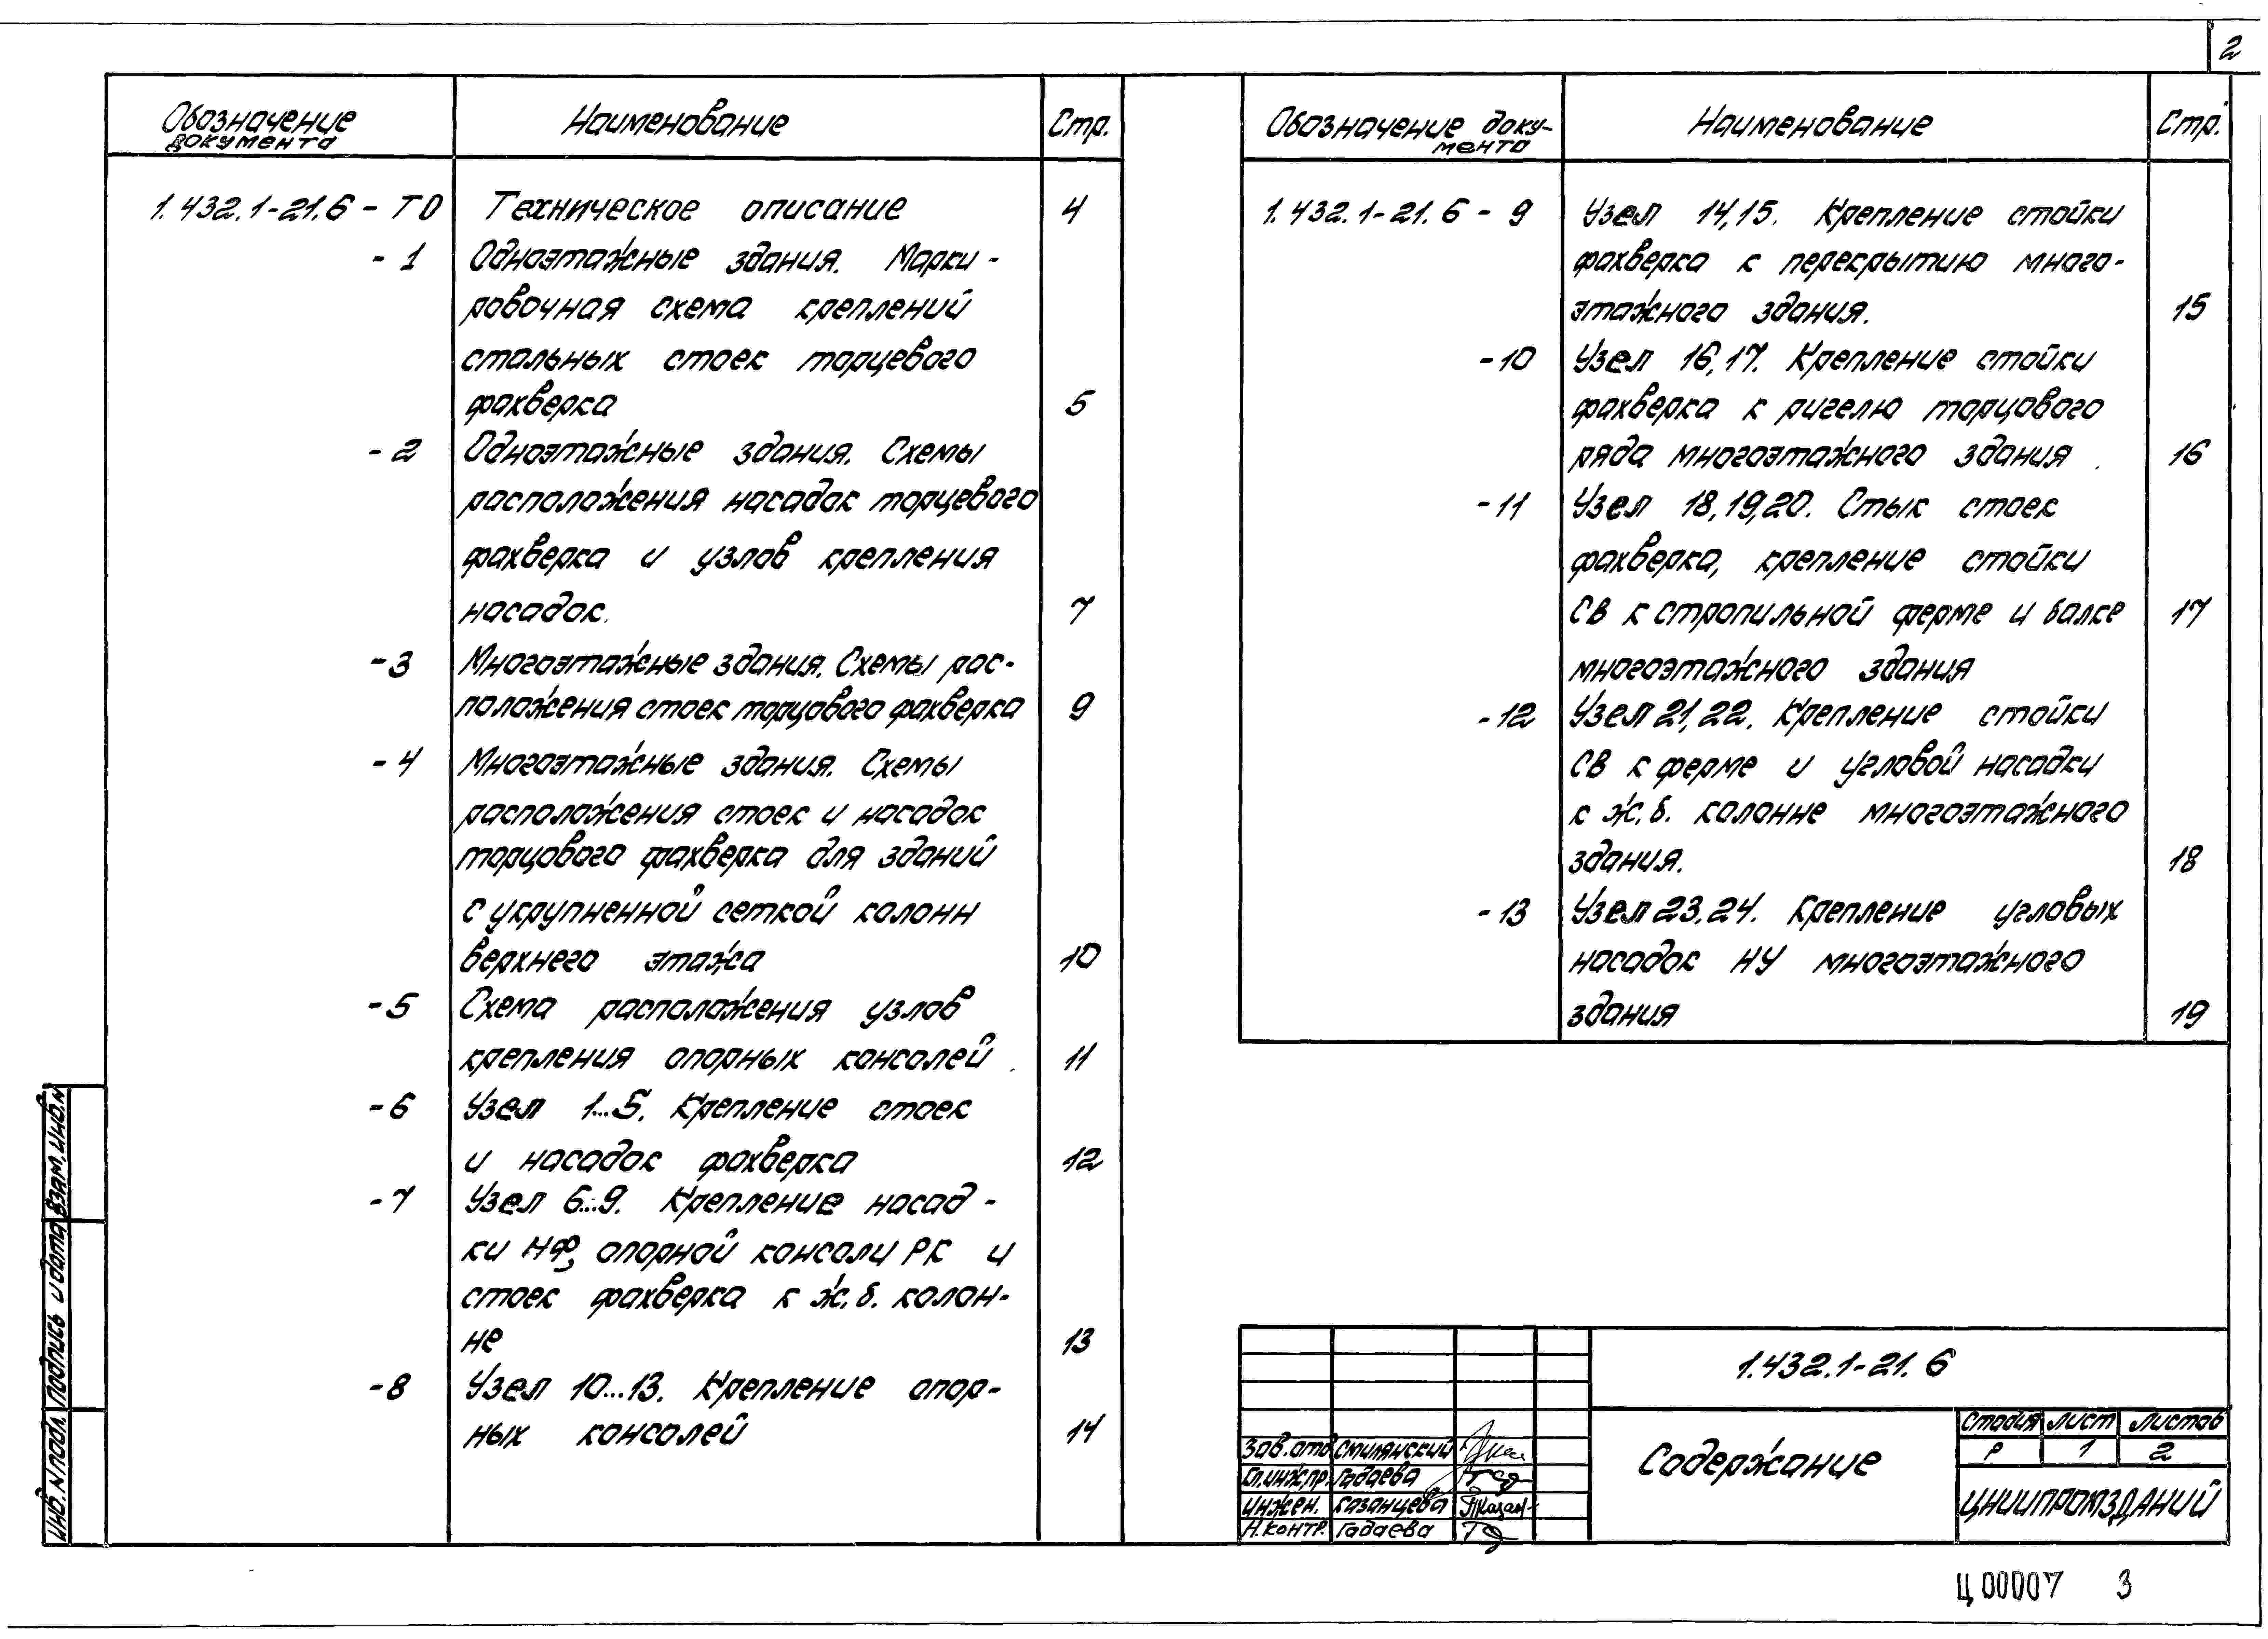 2
Обозначение документа Наименование Стр.
1.432.1-21.6 - ТО Техническое описание 4
- 1 Одноэтажные здания. Марки-
ровочная схема креплений
стальных стоек торцевого
фахверка 5
- 2 Одноэтажные здания. Схемы
расположения насадок торцевого
фахверка и узлов крепления
насадок. 7
- 3 Многоэтажные здания. Схемы рас-
положения стоек торцового фахверка 9
- 4 Многоэтажные здания. Схемы
расположения стоек и насадок
торцового фахверка для зданий
с укрупненной сеткой колонн
верхнего этажа 10
- 5 Схема расположения узлов
крепления опорных консолей 11
- 6 Узел 1...5. Крепление стоек
и насадок фахверка 12
- 7 Узел 6...9. Крепление насад-
ки НФ, опорной консоли РК и
стоек фахверка к ж.б. колон-
не 13
- 8 Узел 10...13. Крепление опор-
ных консолей 14
Обозначение доку-
мента Наименование Стр.
1.432.1-21.6 - 9 Узел 14,15. Крепление стойки
фахверка к перекрытию много-
этажного здания. 15
- 10 Узел 16,17. Крепление стойки
фахверка к ригелю торцового
ряда многоэтажного здания 16
- 11 Узел 18,19,20. Стык стоек
фахверка, крепление стойки
СВ к стропильной ферме и балке 17
многоэтажного здания
- 12 Узел 21,22. Крепление стойки
СВ к ферме и угловой насадки
к ж.б. колонне многоэтажного
здания. 18
- 13 Узел 23,24. Крепление угловых
насадок НУ многоэтажного
здания 19
Инв. N подл. Подпись и дата Взам. инв. N
1.432.1-21.6
Содержание
Стадия Лист Листов
Р 1 2
ЦНИИПРОМЗДАНИЙ
Зав. отд Смилянский
Гл.инж.пр. Гадаева
Инжен. Казанцева
Н. контр. Гадаева
Ц00007 3